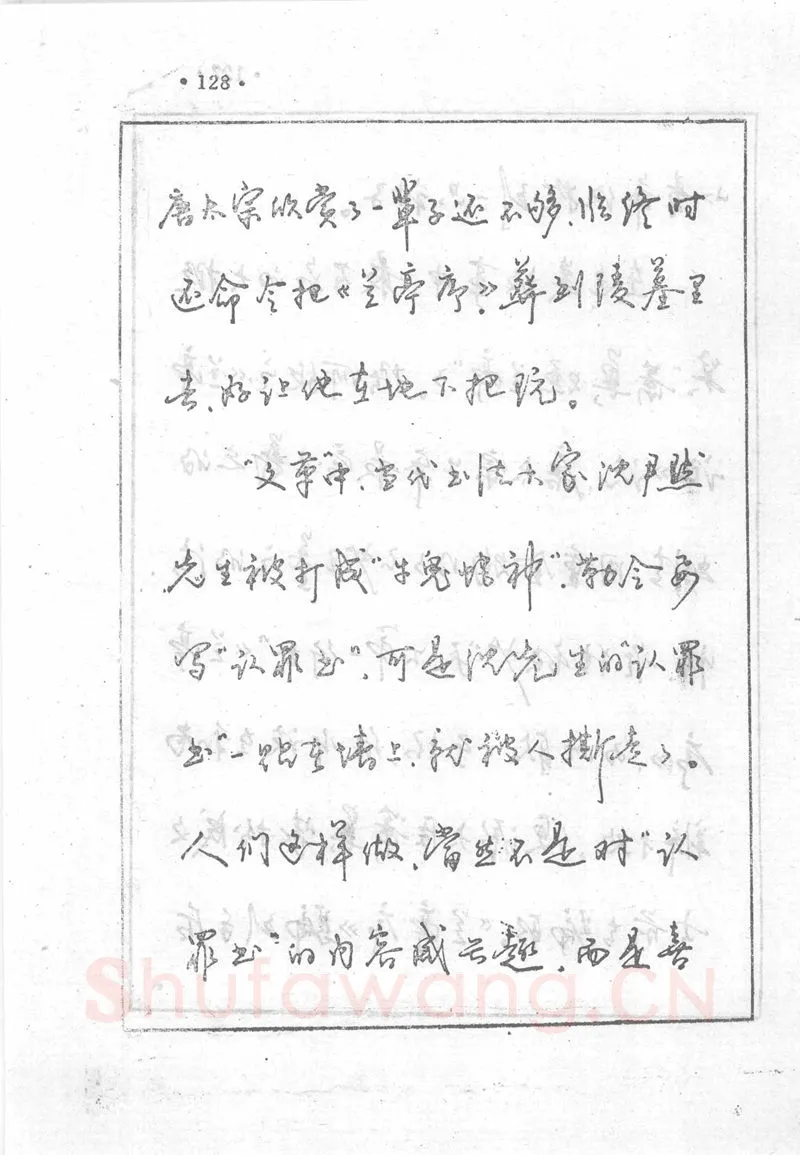 ·128·
唐太宗欣赏了一辈子还不够、临终时
还命令把《兰亭序》葬到陵墓里
去、好让他在地下把玩。
“文革”中、当代书法大家沈尹默
先生被打成“牛鬼蛇神”、勒令要
写“认罪书”、可是沈先生的“认罪
书”一贴在墙上、就被人撕走了。
人们这样做、当然不是对“认
罪书”的内容感兴趣、而是喜
Shufawang.CN